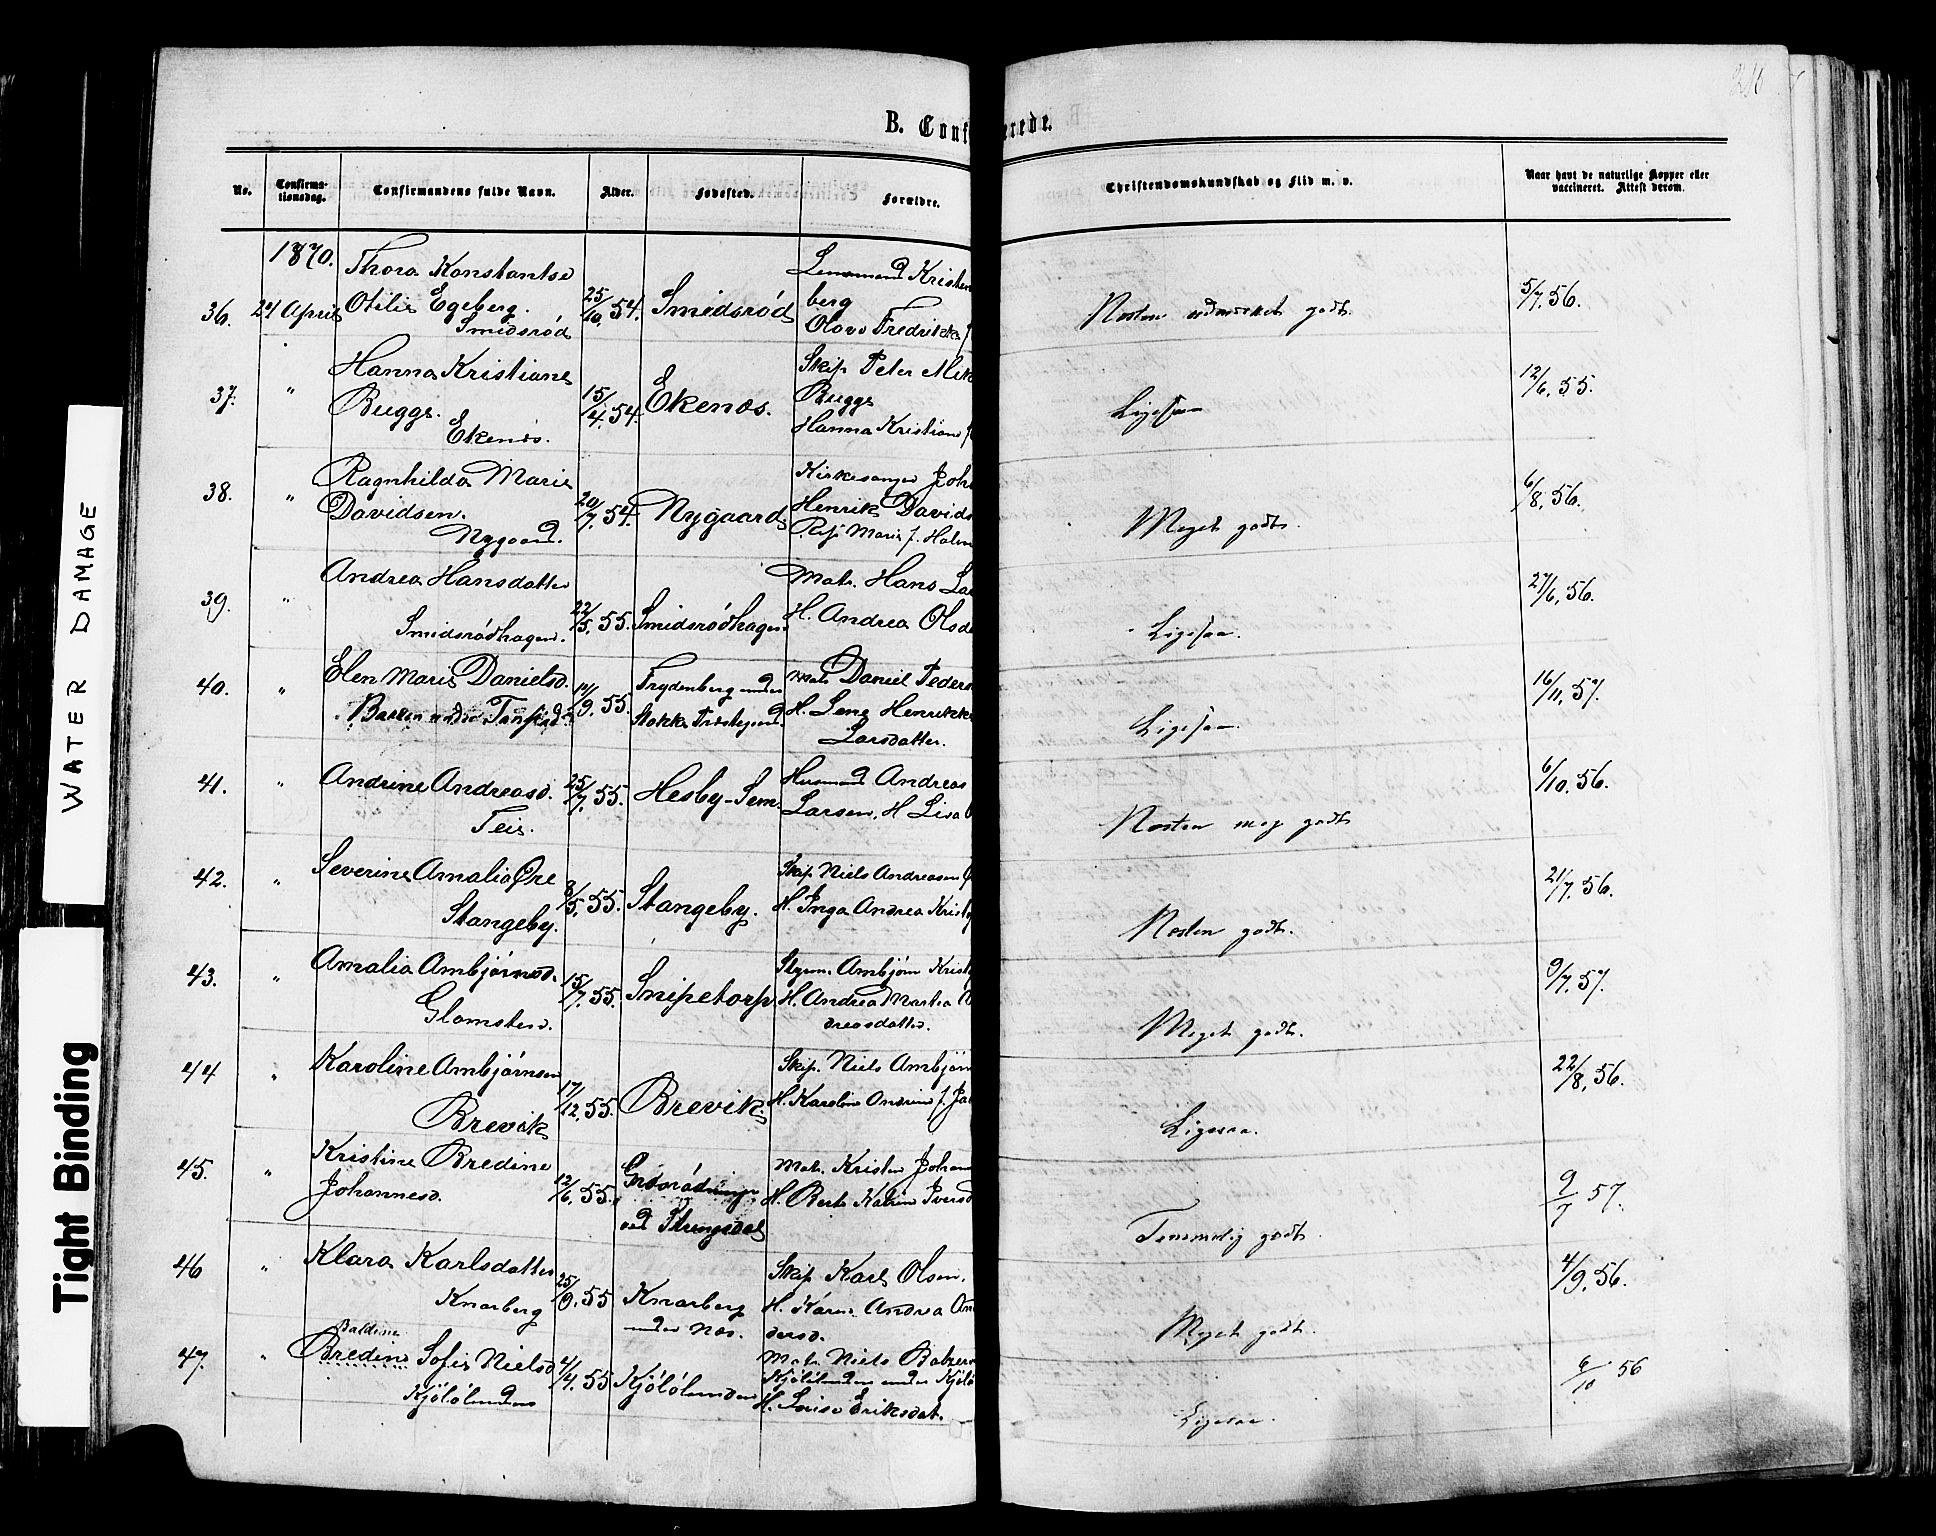 216
B. Conf erede.
No.
Confirma-
tionsdag.
Confirmandens fulde Navn.
Alder.
Fødested.
Forældre.
Christendomskundskab og Flid m. v.
Naar havt de naturlige Kopper eller
vaccineret. Attest derom.
1870.
36. 24 April
Thora Konstantse
Otilie Egeberg.
Smidsrød
25/10. 54.
Smidsrød
Lensmand Kristen
berg
Olava Fredrikke f
Næsten udmærket godt.
5/7, 56.
37. "
Hanna Kristiane
Bugge.
Ekenæs.
15/4. 54.
Ekenæs.
Skip. Peter Mik
Bugge
Hanna Kristiane f
Ligesaa
12/6, 55.
38. "
Ragnhilda Marie
Davidsen.
Nygaard.
20/7. 54.
Nygaard
Kirkesanger Joh
Henrik Davids
Marie f. Holm
Meget godt.
6/8, 56.
39. "
Andrea Hansdatter
Smidsrødhagen.
22/5. 55.
Smidsrødhagen
Matr. Hans La
H. Andrea Olsda
Ligesaa.
27/6, 56.
40. "
Elen Marie Danielsd.
Bakken under
9. 55.
Frydenberg under
Stokke Præstegjeld.
Matr. Daniel Peders
H. Lene Henrikke
Larsdatter.
Ligesaa
16/11, 57.
41. "
Andrine Andreasd.
Teie.
25/7. 55.
Hesby - Sem.
Husmand Andreas
Larsen, H. Lisa
Næsten meg godt
6/10. 56.
42. "
Severine Amalia Øre
Stangeby.
8/5. 55.
Stangeby.
Skip. Niels Andreasen Ø
H. Inga Andrea Krist
Næsten godt.
21/7. 56.
43. "
Amalia Ambjørnsd.
Glomsten.
15/7. 55.
Snipetorp
Styrm. Ambjørn Krist
H. Andrea Martea A
dreasdatter.
Meget godt.
9/7. 57.
44 "
Karoline Ambjørnsen
Brevik
17/12. 55.
Brevik.
Skip. Niels Ambjørn
H. Karoline Andrine f. Ja
Ligesaa.
22/8, 56.
45. "
Kristine Bredine
Johannesd.
12/6. 55.
ved
Matr. Kristen Johan
H. Berte Katrine Iversd
Temmelig godt.
9/7 57.
46 "
Klara Karlsdatter
Knarberg
25/9. 55
Knarberg
under Næs.
Skip Karl Olsen.
H. Karen Andrea An
dersd.
Meget godt.
4/9. 56.
47. "
Baldine
Bredine Sofie Nielsd
Kjølølunden
4/4. 55
Kjølølunden
Matr Niels Baltzer
Kjøløl under Kjølø
H. Louise Eriksdat.
Ligesaa.
6/10 56
WATER DAMAGE
Tight Binding